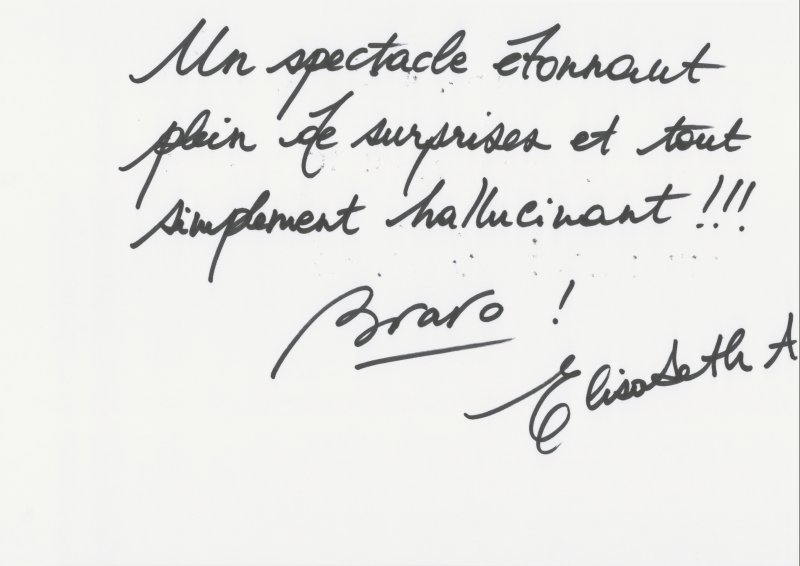 Un spectacle étonnant
plein de surprises et tout
simplement hallucinant !!!
Bravo !
Elisabeth A